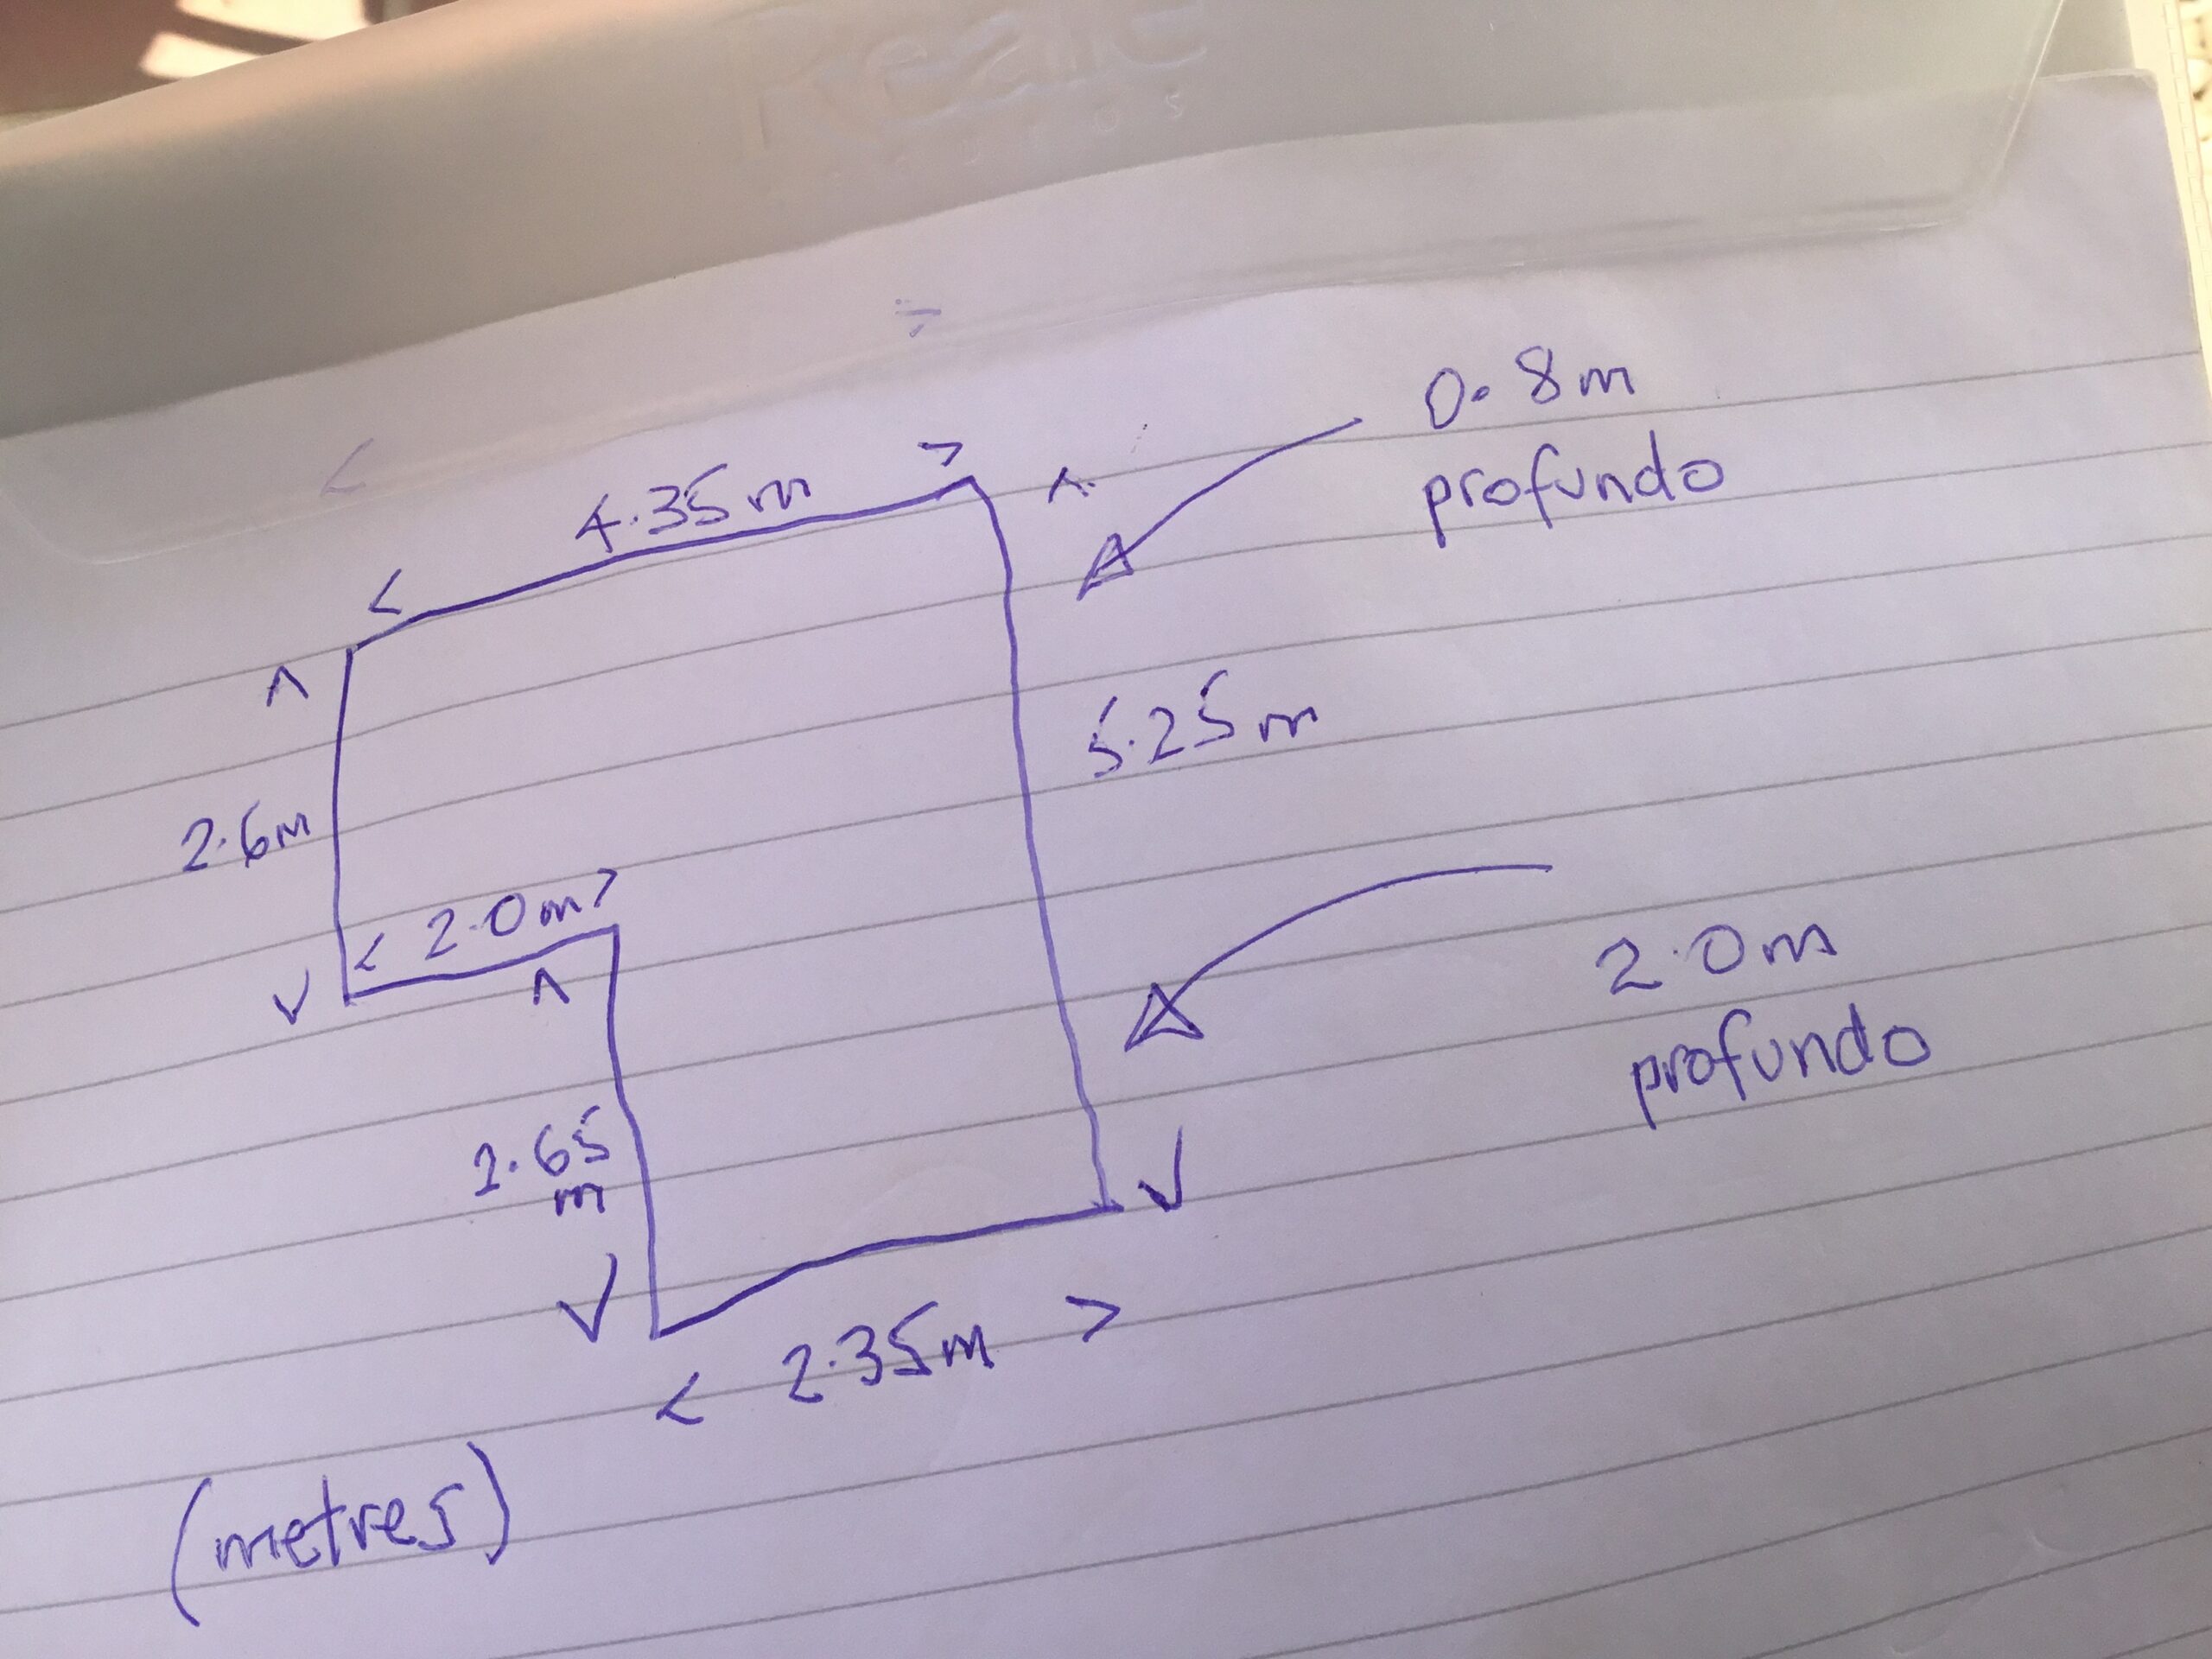 0.8m
profundo
4.35m
5.25m
2.6m
2.0m
2.0m
profundo
2.65
m
2.35m
(metres)